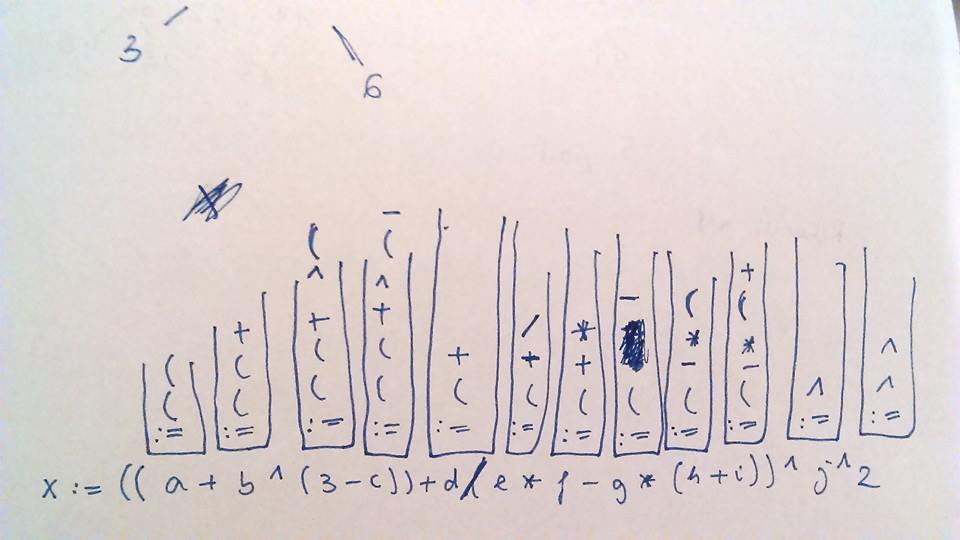 3
6
−
( (
^ ^ +
+ + + / * − ( (
( ( ( ( + + + * * ^
− −
( ( ( ( ( ( ( ( ( ( ^ ^
:= := := := := := := := := := := :=
x := (( a + b ^ (3 - c)) + d / e * f - g * (h + i)) ^ j ^ 2